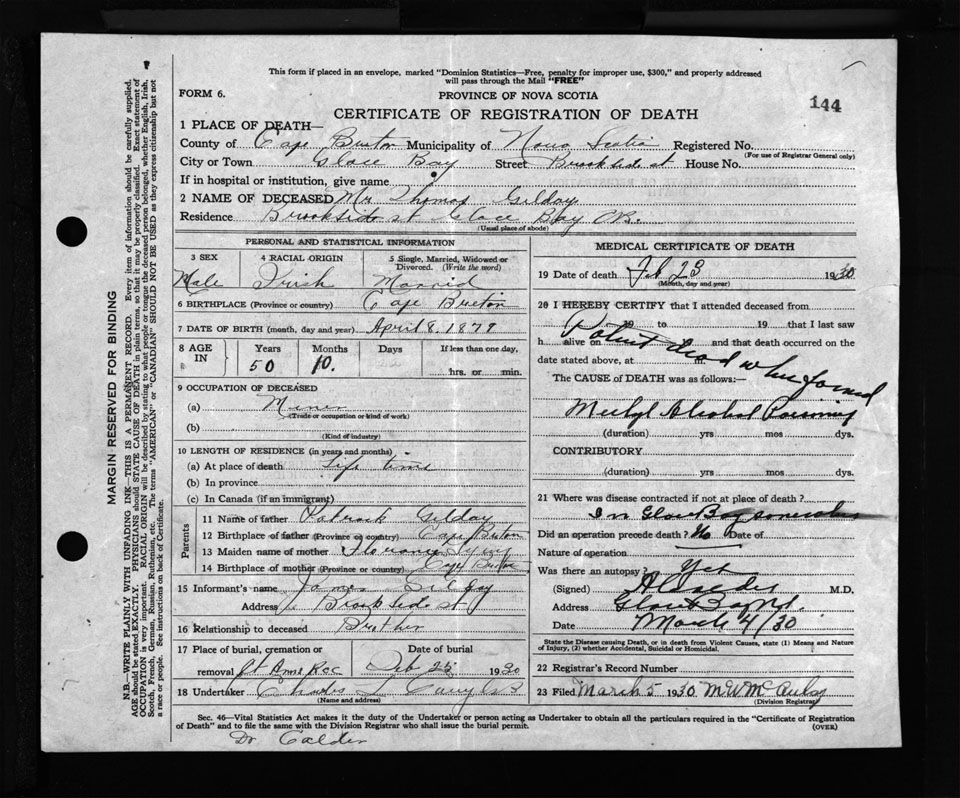 This form if placed in an envelope, marked "Dominion Statistics—Free, penalty for improper use, $300," and properly addressed
will pass through the Mail "FREE"
FORM 6.
PROVINCE OF NOVA SCOTIA
144
CERTIFICATE OF REGISTRATION OF DEATH
1 PLACE OF DEATH—
County of Cape Breton Municipality of Nova Scotia Registered No.
(For use of Registrar General only)
City or Town Glace Bay Street Brookside st House No.
If in hospital or institution, give name
2 NAME OF DECEASED Mr Thomas Gilday
Residence Brookside st Glace Bay CB.
(Usual place of abode)
PERSONAL AND STATISTICAL INFORMATION
3 SEX 4 RACIAL ORIGIN 5 Single, Married, Widowed or Divorced. (Write the word)
Male Irish Married
6 BIRTHPLACE (Province or country) Cape Breton
7 DATE OF BIRTH (month, day and year) April 8. 1879
8 AGE IN Years Months Days If less than one day,
50 10. hrs. or min.
9 OCCUPATION OF DECEASED
(a) Miner
(Trade or occupation or kind of work)
(b)
(Kind of industry)
10 LENGTH OF RESIDENCE (in years and months)
(a) At place of death Life time
(b) In province
(c) In Canada (if an immigrant)
Parents
11 Name of father Patrick Gilday
12 Birthplace of father (Province or country) Cape Breton
13 Maiden name of mother Florance
14 Birthplace of mother (Province or country) Cape Breton
15 Informant's name James Gilday
Address Brookside st
16 Relationship to deceased Brother
17 Place of burial, cremation or removal St Anns R&C Date of burial Feb 25 1930
18 Undertaker Charles L
(Name and address)
MEDICAL CERTIFICATE OF DEATH
19 Date of death Feb 23 1930
(Month, day and year)
20 I HEREBY CERTIFY that I attended deceased from
19 to 19 that I last saw
h alive on and that death occurred on the
date stated above, at m.
Patient dead when found
The CAUSE of DEATH was as follows:—
Methyl Alcohol Poisoning
(duration) yrs mos dys.
CONTRIBUTORY
(duration) yrs mos dys.
21 Where was disease contracted if not at place of death?
In Glace Bay somewhere
Did an operation precede death? No Date of
Nature of operation
Was there an autopsy? Yes
(Signed) A Calder M.D.
Address Glace Bay N.S.
Date March 4/30
State the Disease causing Death, or in death from Violent Causes, state (1) Means and Nature
of Injury, (2) whether Accidental, Suicidal or Homicidal.
22 Registrar's Record Number
23 Filed March 5 1930 M W McAulay
(Division Registrar)
Sec. 46—Vital Statistics Act makes it the duty of the Undertaker or person acting as Undertaker to obtain all the particulars required in the "Certificate of Registration
of Death" and to file the same with the Division Registrar who shall issue the burial permit.
(OVER)
Dr Calder
MARGIN RESERVED FOR BINDING
N.B.—WRITE PLAINLY WITH UNFADING INK—THIS IS A PERMANENT RECORD. Every item of information should be carefully supplied.
AGE should be stated EXACTLY. PHYSICIANS should STATE CAUSE OF DEATH in plain terms, so that it may be properly classified. Exact statement of
OCCUPATION is very important. RACIAL ORIGIN will be described by stating to what people or tongue the deceased person belonged, whether English, Irish,
Scotch, French, German, Russian, Ruthenian, etc. The terms "AMERICAN" or "CANADIAN" SHOULD NOT BE USED as they express citizenship but not
a race or people. See instructions on back of Certificate.